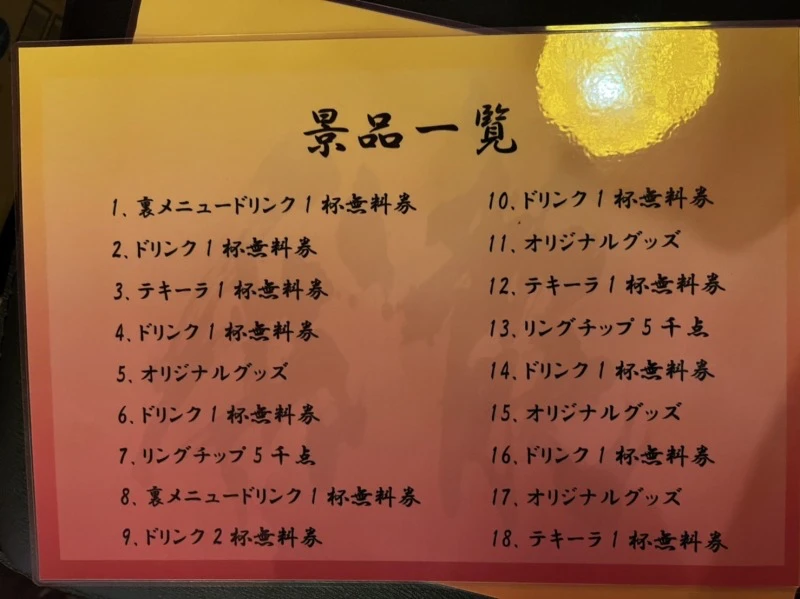 景品一覧
1、裏メニュードリンク1杯無料券
2、ドリンク1杯無料券
3、テキーラ1杯無料券
4、ドリンク1杯無料券
5、オリジナルグッズ
6、ドリンク1杯無料券
7、リングチップ5千点
8、裏メニュードリンク1杯無料券
9、ドリンク2杯無料券
10、ドリンク1杯無料券
11、オリジナルグッズ
12、テキーラ1杯無料券
13、リングチップ5千点
14、ドリンク1杯無料券
15、オリジナルグッズ
16、ドリンク1杯無料券
17、オリジナルグッズ
18、テキーラ1杯無料券